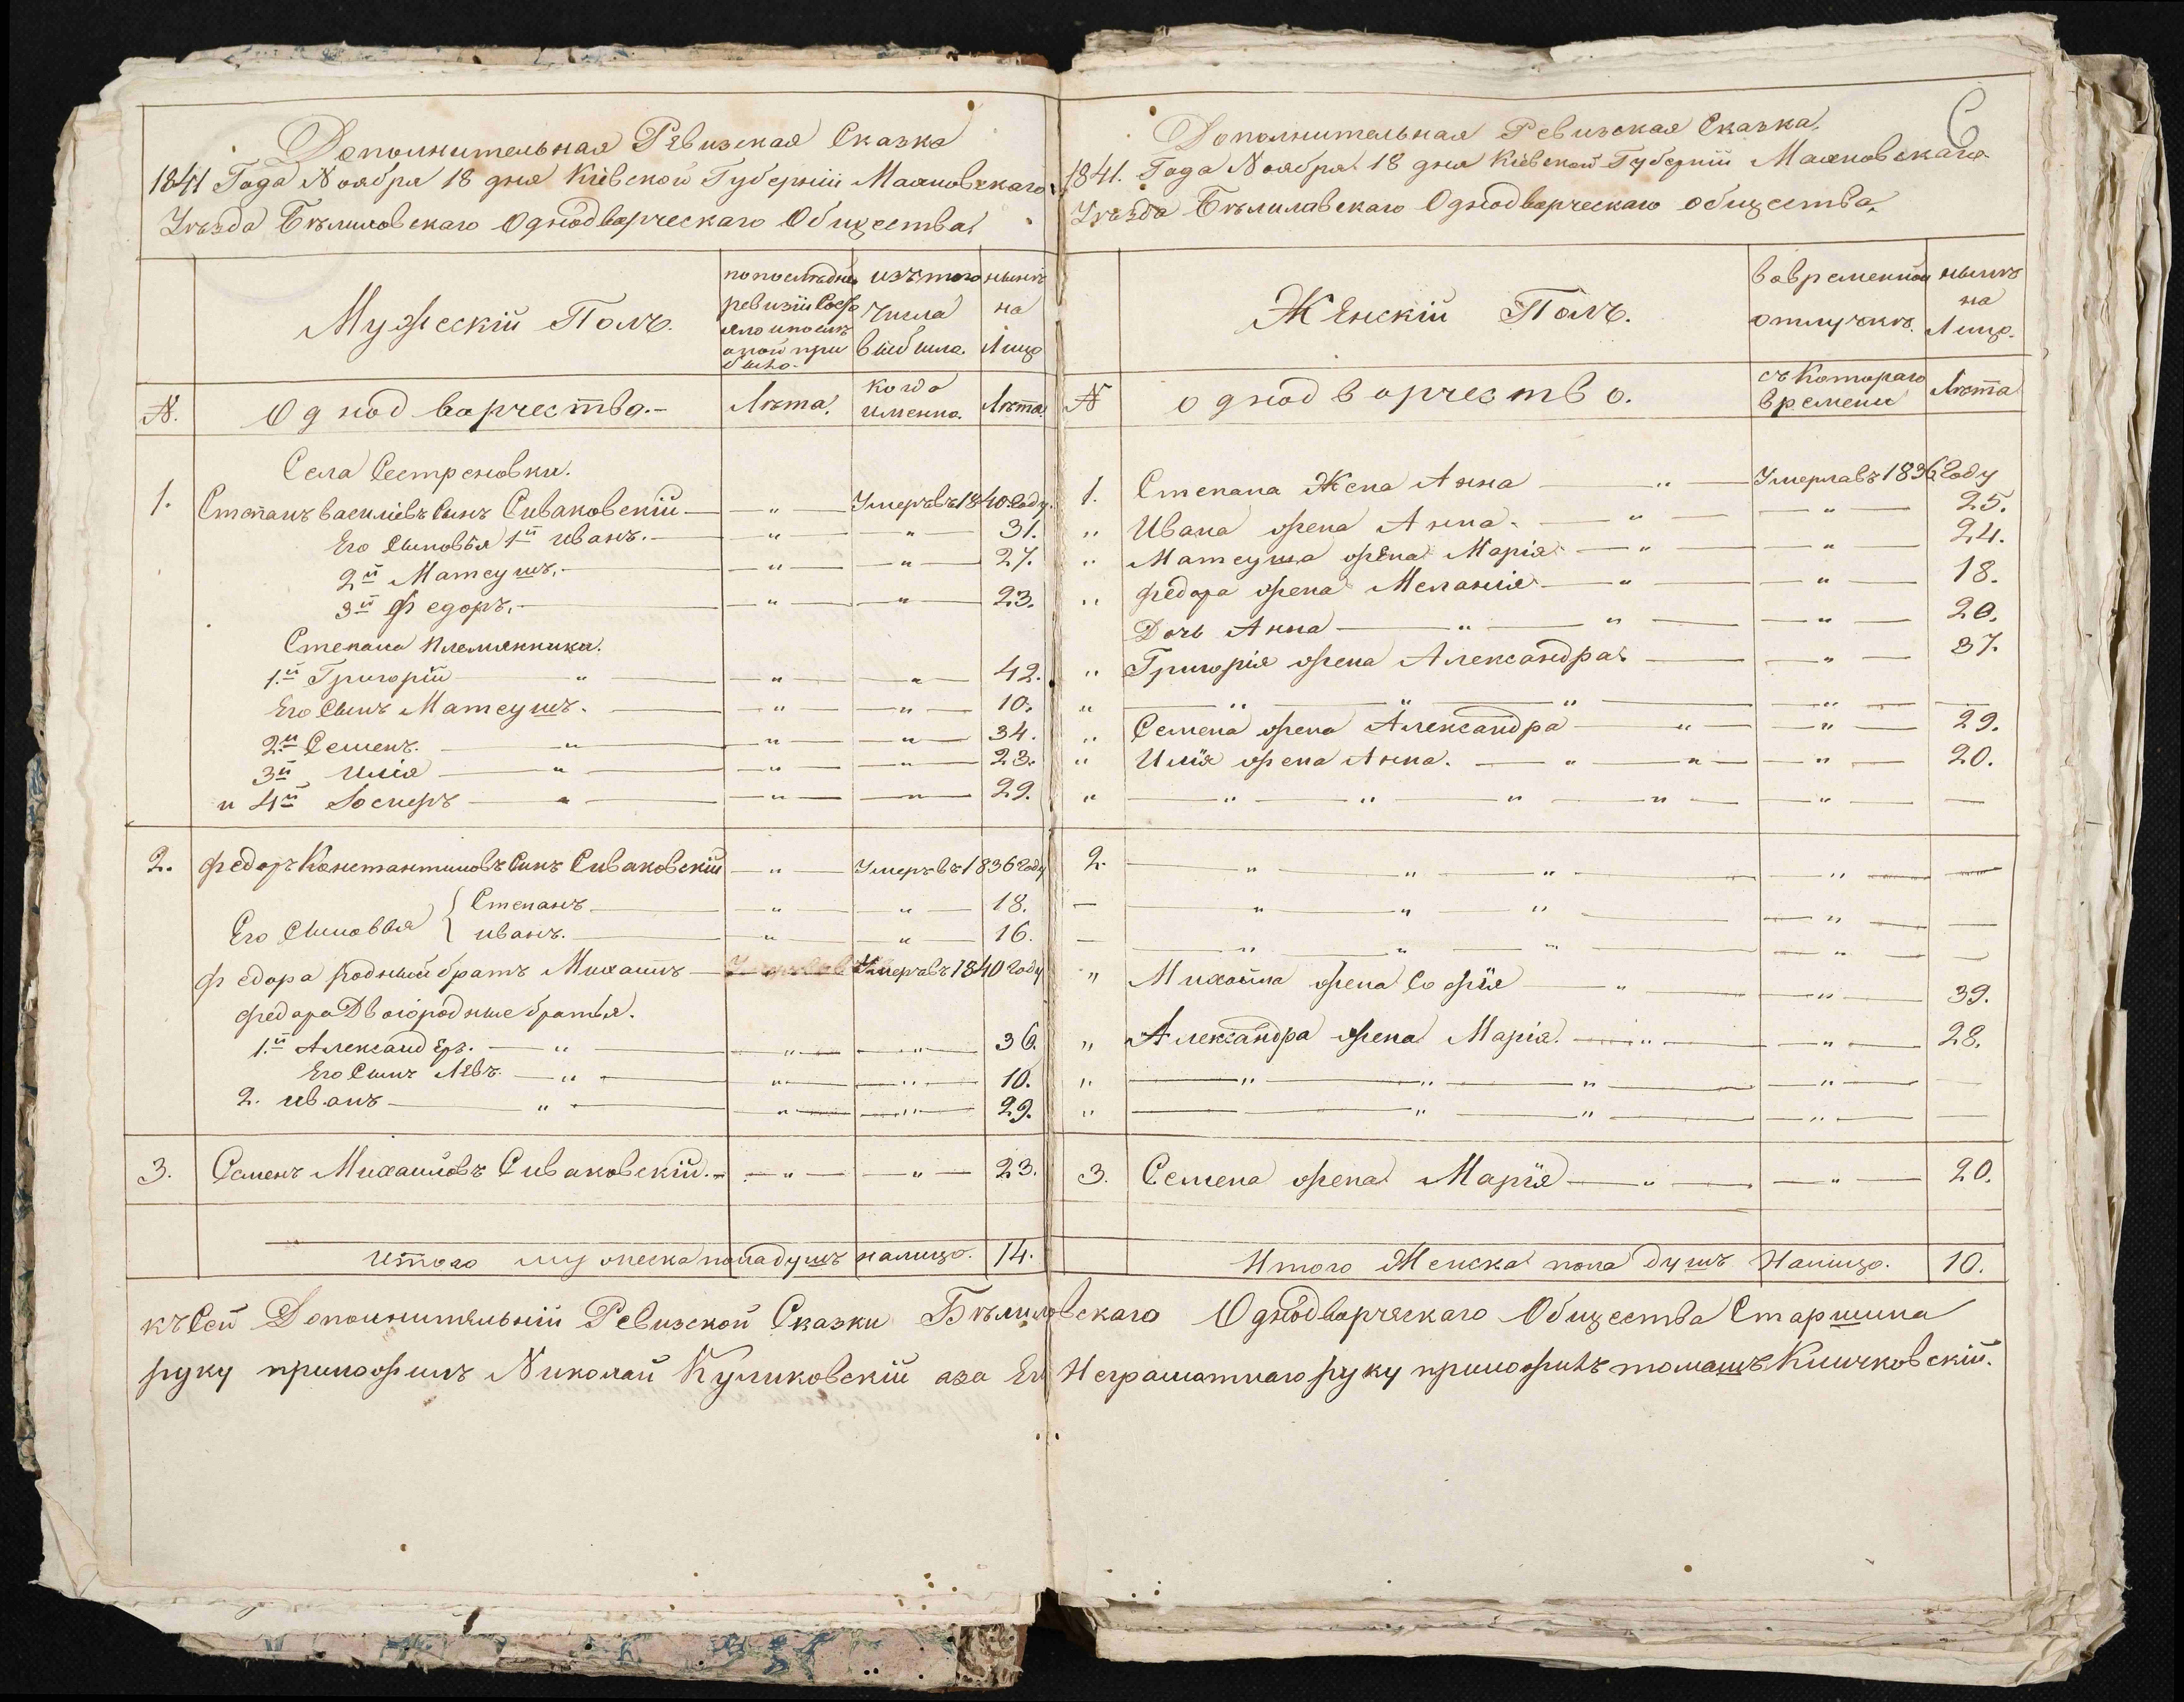 Дополнительная Ревизская Сказка
1841 Года Ноября 18 дня Кіевской Губерніи Махновскаго
Уѣзда Бѣлиловскаго Однодворческаго Общества
Мужескій Полъ.
по последней ревизіи состояло и после оной прибыло.
изъ того числа выбыло.
нынѣ на Лицо
N.
Однодворчество.-
Лѣта.
когда именно.
Лѣта
Села Сестреновки.
1. Степанъ Василіевъ Сынъ Сиваковскій — " — Умеръ въ 1840 Году.
Его Сыновья 1й Иванъ. — " — " — 31.
2й Матеушъ. — " — " — 27.
3й Федоръ. — " — " — 23.
Степана племянники.
1.й Григорій " — " — " — 42.
Его Сынъ Матеушъ. — " — " — 10.
2й Семенъ. — " — " — " — 34.
3й Илія — " — " — " — 23.
и 4й Іосифъ — " — " — " — 29.
2. Федоръ Константиновъ Сынъ Сиваковскій — " — Умеръ въ 1836 Году
Его Сыновья { Степанъ — " — " — 18.
Иванъ. — " — " — 16.
Федора родный братъ Михаилъ — Умеръ въ 1840 Году
Федора Двоюродные братья.
1.й Александеръ. — " — " — " — 36.
Его Сынъ Левъ. — " — " — " — 10.
2. Иванъ — " — " — " — 29.
3. Семенъ Михаиловъ Сиваковскій. — " — " — 23.
Итого мужеска пола душъ налицо. 14.
Дополнительная Ревизская Сказка.
6
1841. Года Ноября 18 дня Кіевской Губерніи Махновскаго
Уѣзда Бѣлилавскаго Однодворческаго общества.
Женскій Полъ.
во временной отлучкѣ.
нынѣ на Лицо.
N
однодворчество.
съ Котораго времени
Лѣта
1. Степана Жена Анна — " — Умерла въ 1836 Году
" Ивана жена Анна. — " — " — 25.
" Матеуша жена Марія — " — " — 24.
" Федора жена Меланія — " — " — 18.
Дочь Анна — " — " — " — 20.
" Григорія жена Александра — " — 37.
" — " — " — " — " — —
" Семена жена Александра — " — " — 29.
" Илія жена Анна. — " — " — " — 20.
" — " — " — " — " — " — —
2. — " — " — " — " — —
— " — " — " — " — —
— " — " — " — " — —
" Михаила жена Софія — " — " — 39.
" Александра жена Марія. — " — " — 28.
" — " — " — " — " — —
" — " — " — " — —
3. Семена жена Марія — " — " — 20.
Итого Женска пола душъ Налицо. 10.
къ Сей Дополнительній Ревизской Сказки Бѣлиловскаго Однодворческаго Общества Старшина
руку приложилъ Николай Куликовскій а за Его Неграмотнаго руку приложилъ томашъ Кличковскій.